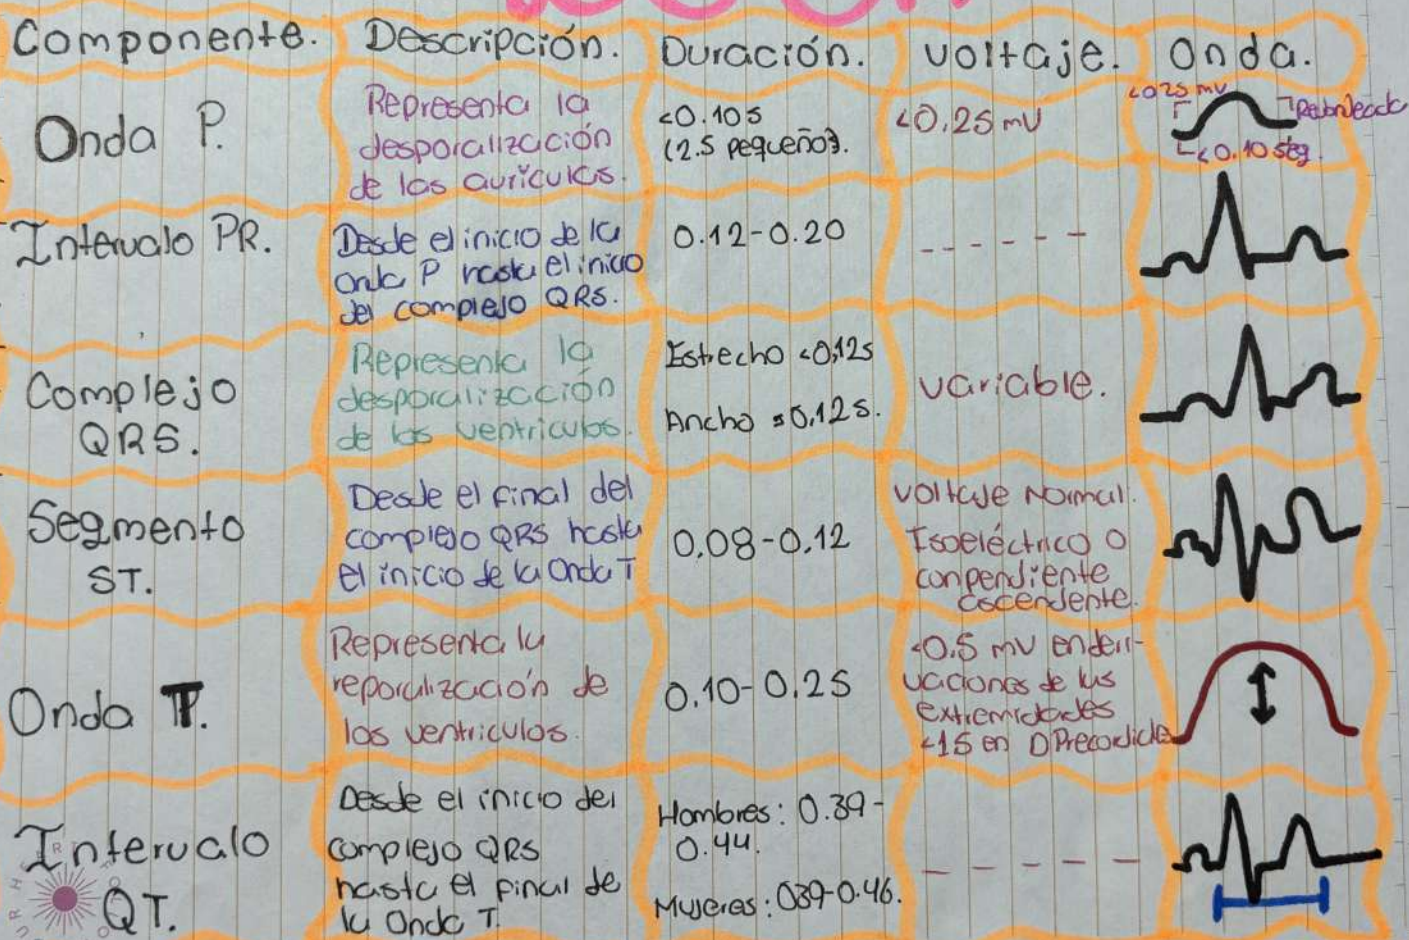 Componente. Descripción. Duración. Voltaje. Onda.
Onda P.
Representa la
desporalización
de las aurículas.
<0.10s
(2.5 pequeño).
<0,25 mV
<025 mV
Redondeada
<0.10 seg.
Intervalo PR.
Desde el inicio de la
Onda P hasta el inicio
del complejo QRS.
0.12-0.20
- - - - - -
Complejo
QRS.
Representa la
desporalización
de los ventriculos.
Estrecho <0,12s
Ancho ≥0,12s.
Variable.
Segmento
ST.
Desde el final del
complejo QRS hasta
el inicio de la Onda T
0,08-0.12
Voltaje Normal.
Isoeléctrico o
conpendiente
ascendente.
Onda T.
Representa la
reporalización de
los ventriculos.
0.10-0.25
<0.5 mV en deri-
vaciones de las
extremidades
<15 en D Precordiales
Intervalo
QT.
Desde el inicio del
complejo QRS
hasta el final de
la Onda T.
Hombres: 0.39-
0.44.
Mujeres: 039-0.46.
- - - - -